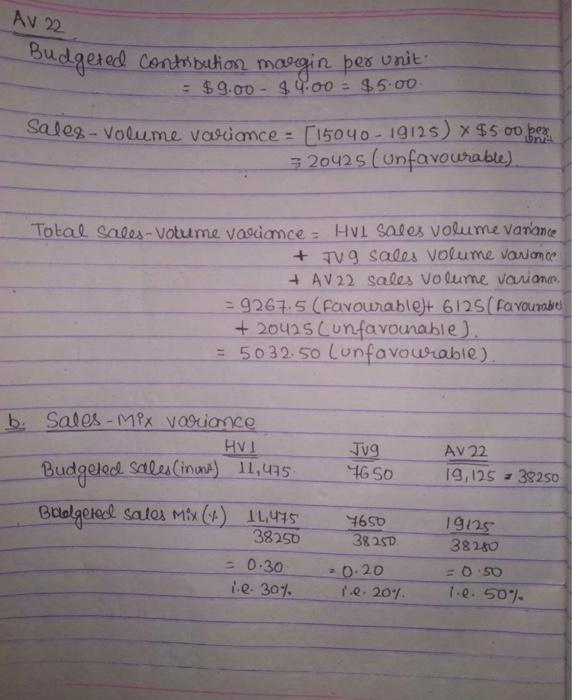 AV 22
Budgeted contribution margin per unit.
= $9.00 - $4.00 = $5.00.
Sales-volume variance = [15040 - 19125) × $5.00 per unit
= 20425 (unfavourable).
Total sales-volume variance = HV1 sales volume variance
+ JV9 sales volume variance
+ AV22 sales volume variance.
= 9267.5 (favourable) + 6125 (favourable)
+ 20425 (unfavourable).
= 5032.50 (unfavourable).
b. Sales-Mix variance
HV1 JV9 AV 22
Budgeted sales (in units) 11,475. 7650 19,125 = 38250
Budgeted sales Mix (%) 11,475 7650 19125
38250 38250. 38250
= 0.30. = 0.20 = 0.50
i.e. 30%. i.e. 20%. i.e. 50%.